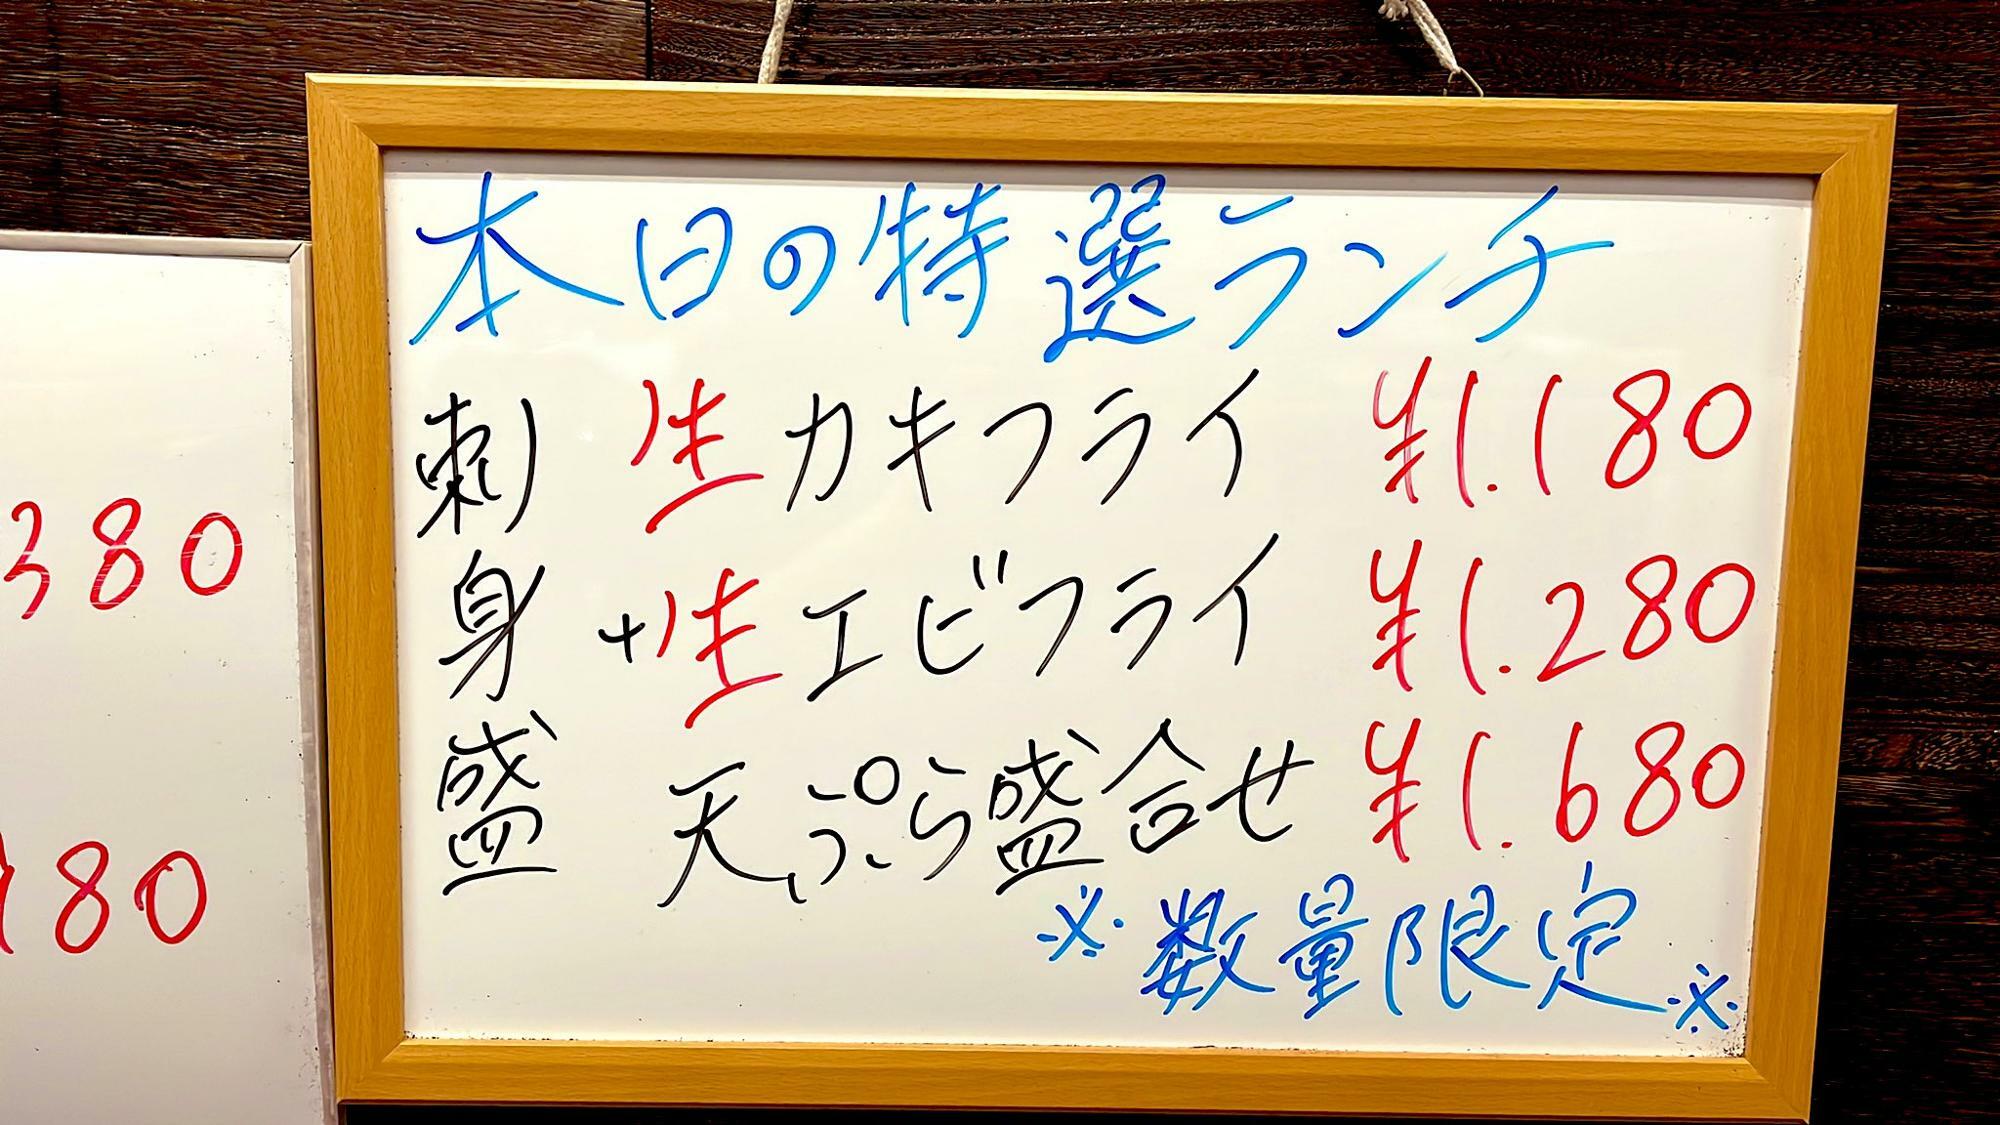 本日の特選ランチ
刺身盛
生カキフライ ¥1.180
+生エビフライ ¥1.280
天ぷら盛合せ ¥1.680
※数量限定※
380
180